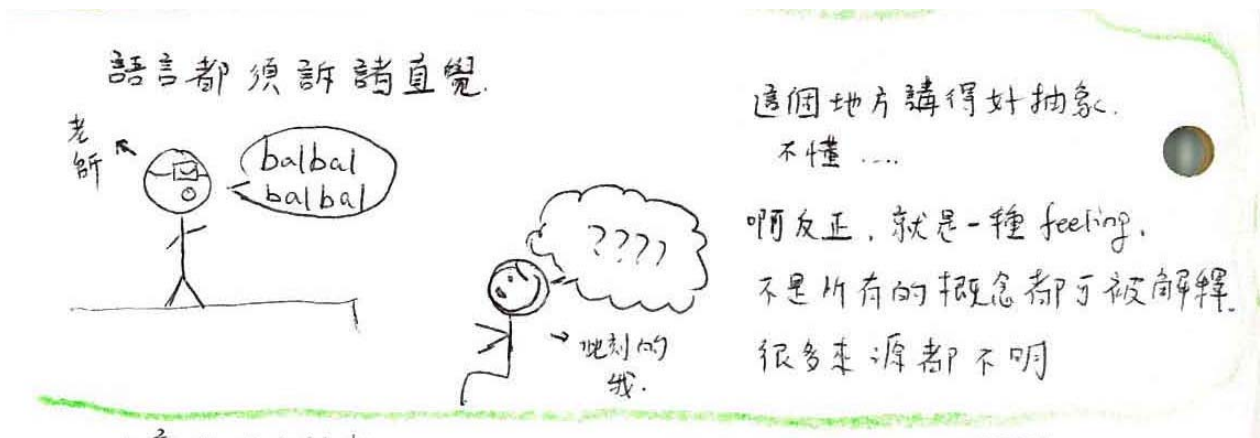 語言都須訴諸直覺.
老師
balbal
balbal
????
此刻的
我.
這個地方講得好抽象.
不懂....
啊反正,就是一種 feeling,
不是所有的概念都可被解釋.
很多來源都不明